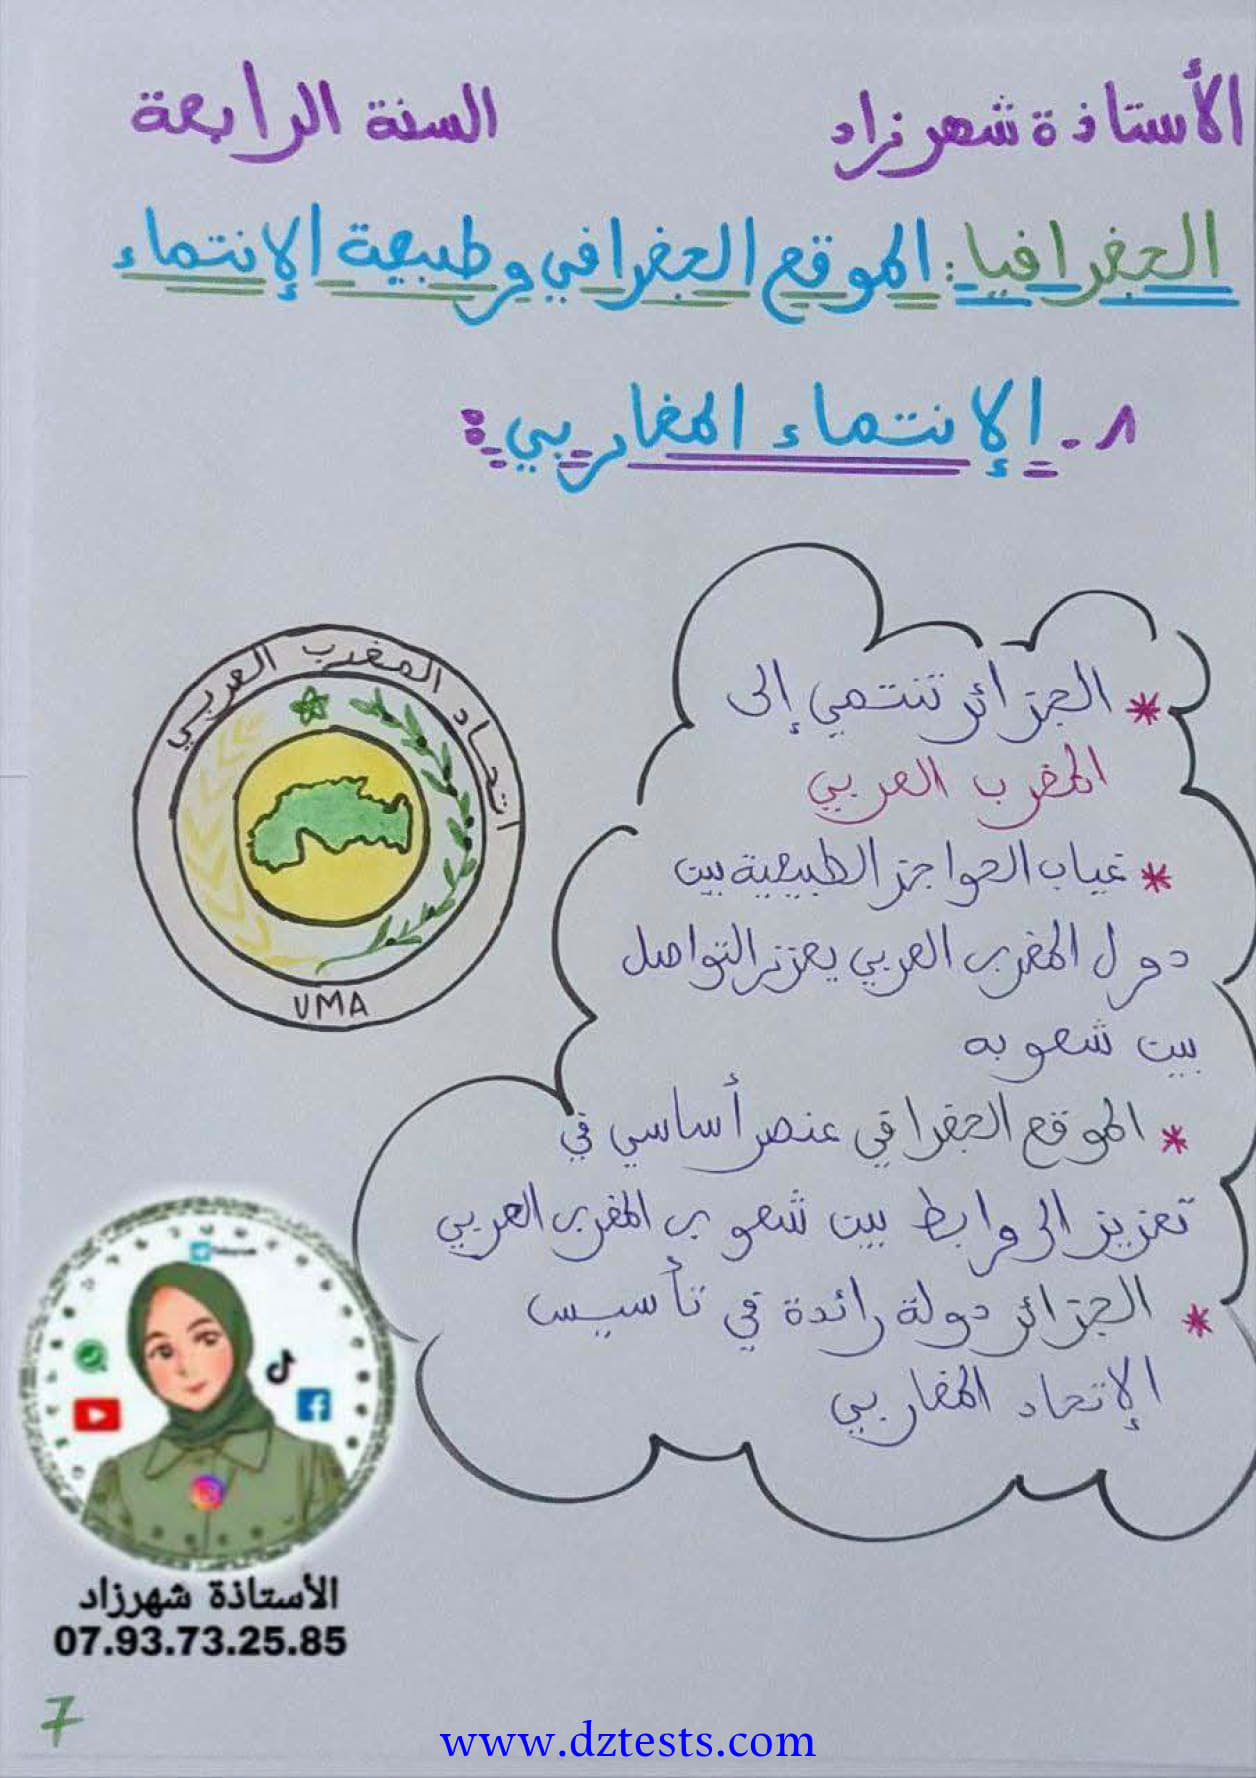 الأستاذة شهرزاد
السنة الرابعة
الجغرافيا: الموقع الجغرافي وطبيعة الإنتماء
1. الإنتماء المغاربي:
* الجزائر تنتمي إلى
المغرب العربي
* غياب الحواجز الطبيعية بين
دول المغرب العربي يعزز التواصل
بين شعوبه
* الموقع الجغرافي عنصر أساسي في
تعزيز الروابط بين شعوب المغرب العربي
* الجزائر دولة رائدة في تأسيس
الإتحاد المغاربي
اتحاد المغرب العربي
UMA
الأستاذة شهرزاد
07.93.73.25.85
7
www.dztests.com